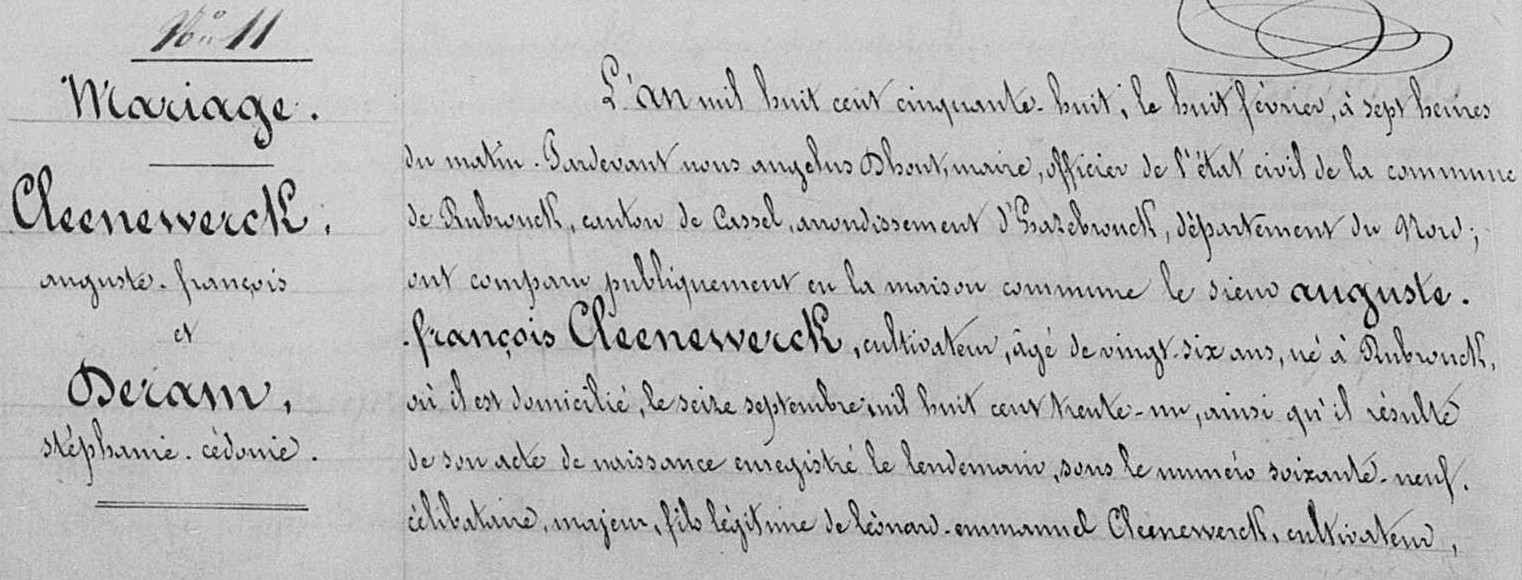 N° 11
Mariage.
Cleenewerck,
auguste-françois
et
Deram,
stéphanie-cédonie.
L'an mil huit cent cinquante-huit, le huit février, à sept heures
du matin. Pardevant nous angelus Dhont, maire, officier de l'état civil de la commune
de Rubrouck, canton de Cassel, arrondissement d'Hazebrouck, département du Nord;
ont comparu publiquement en la maison commune le sieur auguste-
-françois Cleenewerck, cultivateur, âgé de vingt-six ans, né à Rubrouck,
où il est domicilié, le seize septembre mil huit cent trente-un, ainsi qu'il résulte
de son acte de naissance enregistré le lendemain, sous le numéro soixante-neuf.
célibataire, majeur, fils légitime de léonard-emmanuel Cleenewerck, cultivateur,